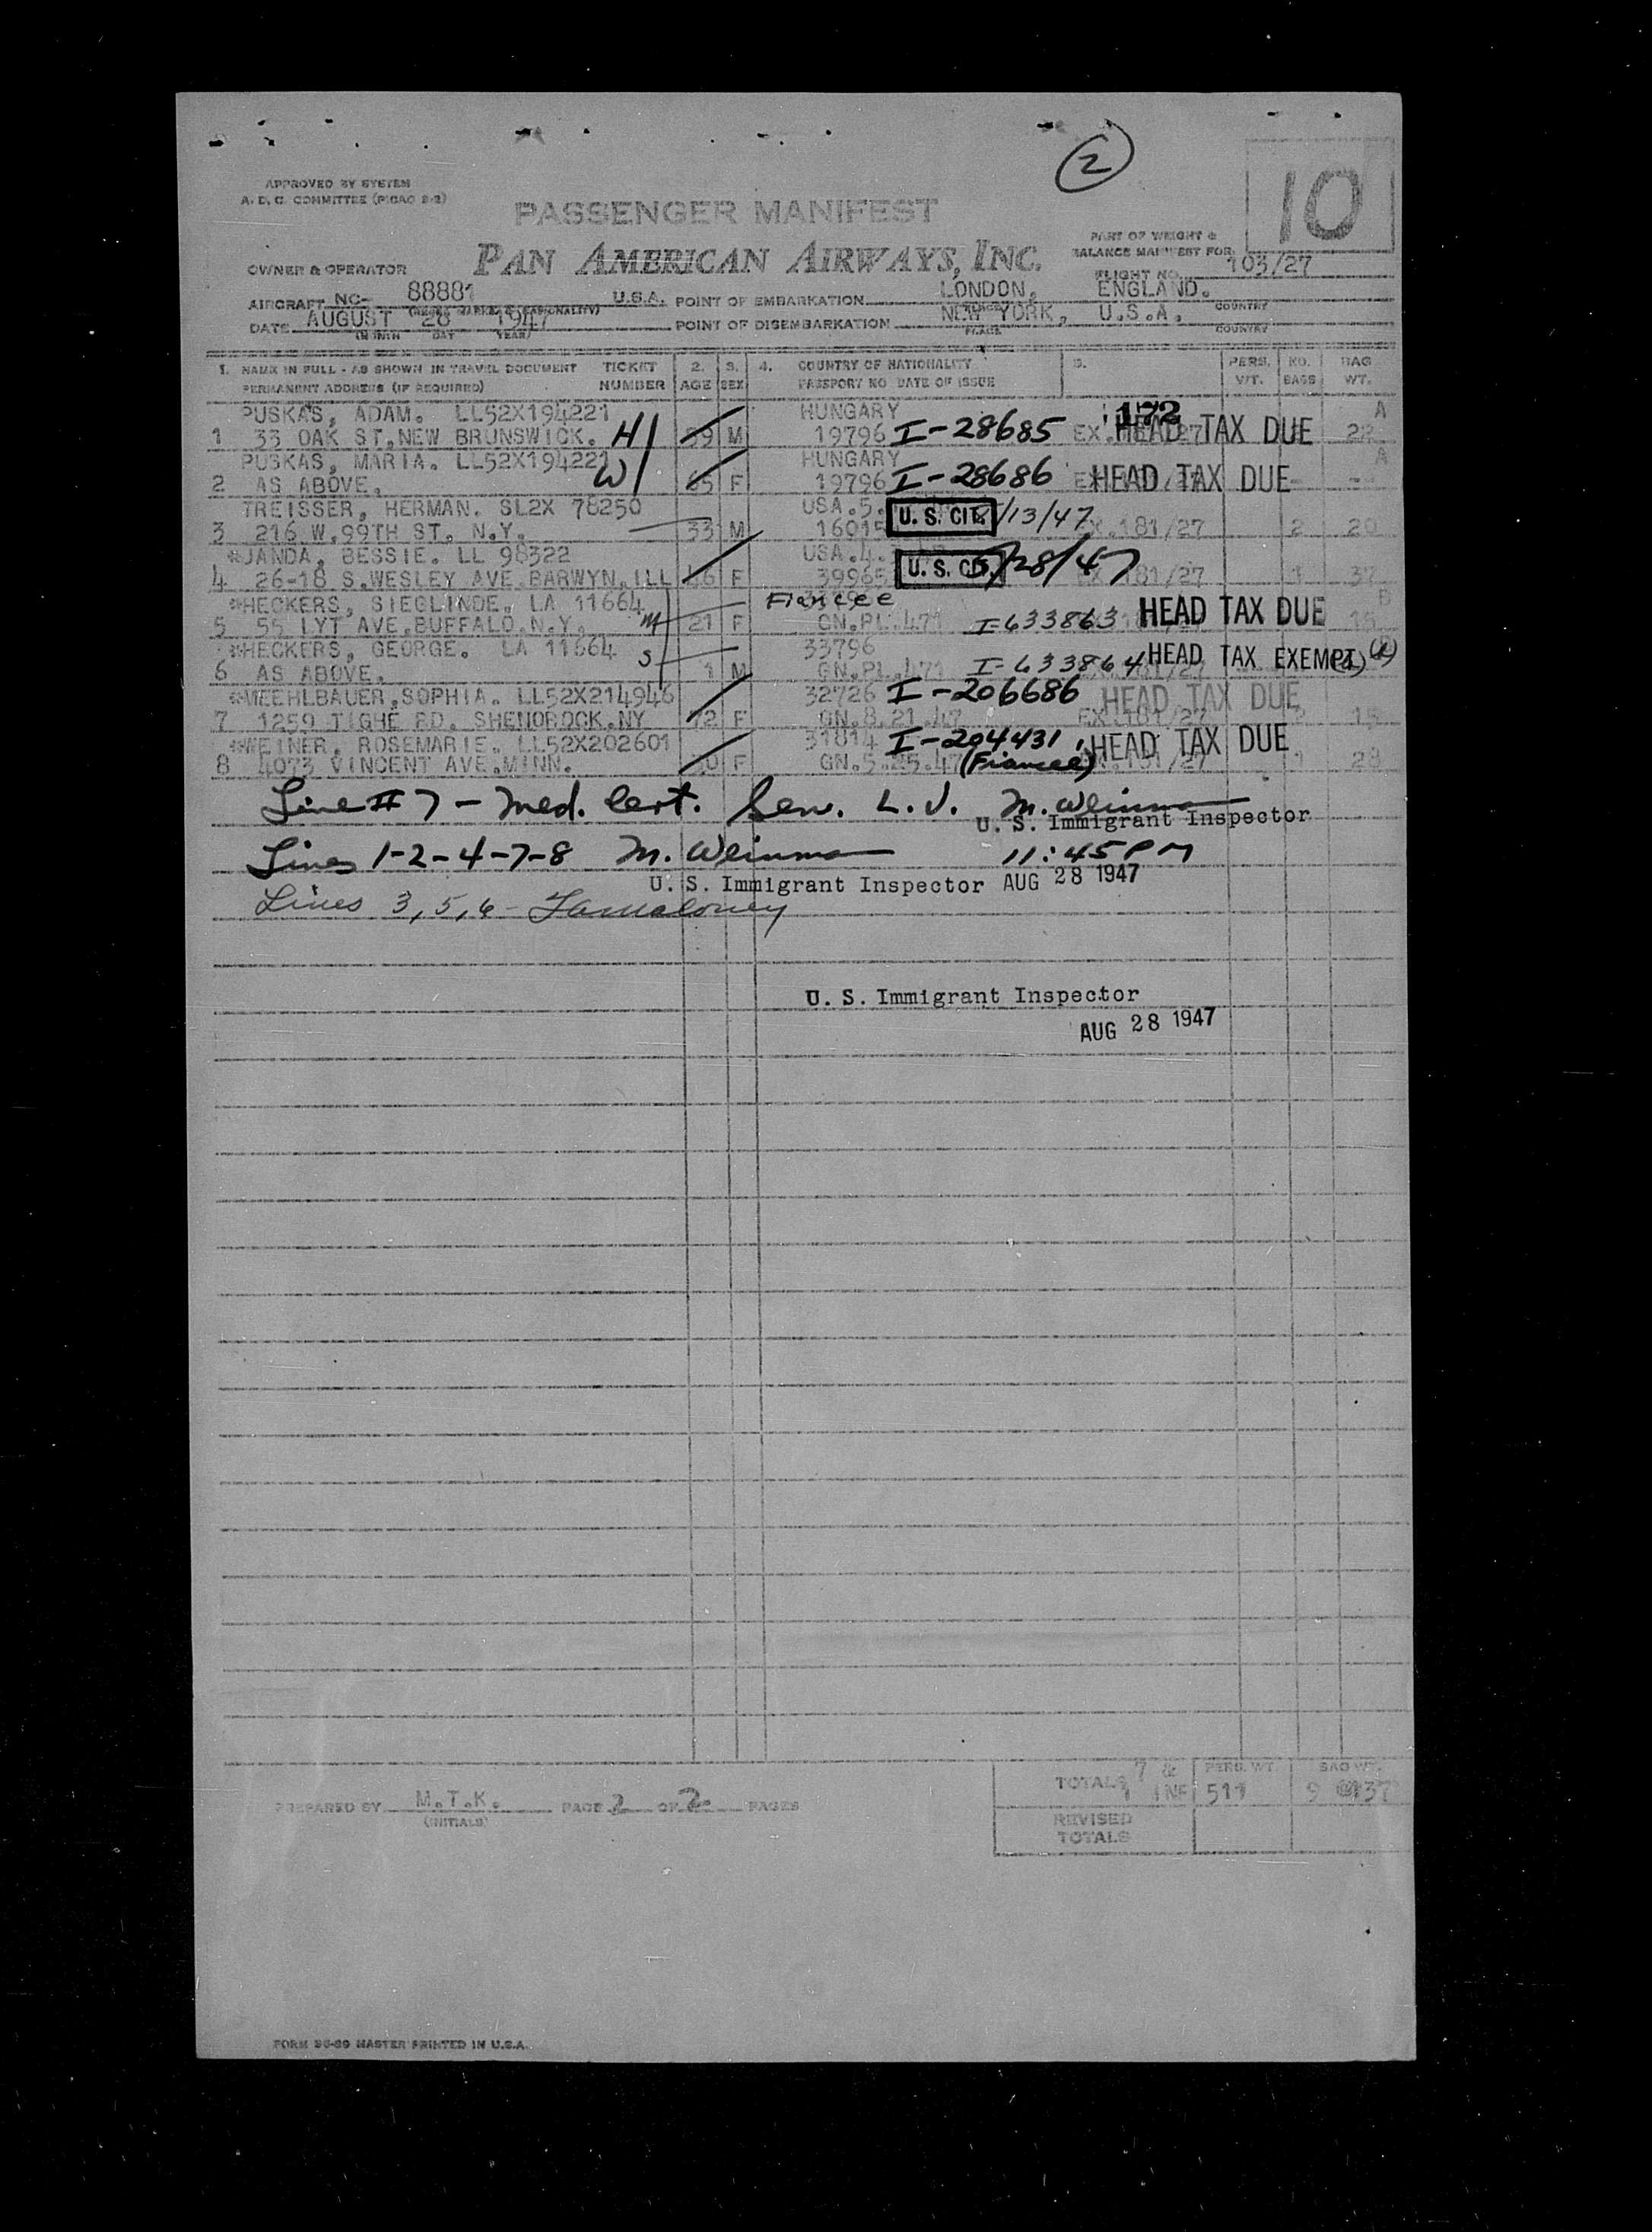 2
10
APPROVED BY SYSTEM
A. D. C. COMMITTEE (PICAO 2-2)
PASSENGER MANIFEST
PART OF WEIGHT &
BALANCE MANIFEST FOR
PAN AMERICAN AIRWAYS, INC.
OWNER & OPERATOR
FLIGHT NO. 103/27
AIRCRAFT NC- 88881 U.S.A. POINT OF EMBARKATION LONDON, ENGLAND.
COUNTRY
DATE AUGUST 28 1947 POINT OF DISEMBARKATION NEW YORK, U.S.A.
(MONTH DAY YEAR) PLACE COUNTRY
1. NAME IN FULL - AS SHOWN IN TRAVEL DOCUMENT TICKET 2. 3. 4. COUNTRY OF NATIONALITY 5. PERS. NO. BAG
PERMANENT ADDRESS (IF REQUIRED) NUMBER AGE SEX PASSPORT NO DATE OF ISSUE WT. BAGS WT.
PUSKAS, ADAM. LL52X194221 HUNGARY 172 A
1 33 OAK ST, NEW BRUNSWICK. H M 19796 I-28685 HEAD TAX DUE
PUSKAS, MARIA. LL52X194221 HUNGARY A
2 AS ABOVE. W F 19796 I-28686 HEAD TAX DUE
TREISSER, HERMAN. SL2X 78250 USA.5. U. S. CIT. /13/47
3 216 W.99TH ST. N.Y. 33 M 16015 EX.181/27 2 20
*JANDA, BESSIE. LL 98322 USA.4. U. S. CIT. /28/47
4 26-18 S.WESLEY AVE.BARWYN.ILL F 39965 EX.181/27 1 37
*HECKERS, SIEGLINDE. LA 11664 Fiancee B
5 55 LYT AVE.BUFFALO.N.Y. M 21 F GN.PL.471 I-633863 HEAD TAX DUE
*HECKERS, GEORGE. LA 11664 33796
6 AS ABOVE. S 1 M GN.PL.471 I-633864 HEAD TAX EXEMPT
*MEEHLBAUER,SOPHIA. LL52X214946 32726 I-206686 HEAD TAX DUE
7 1259 TIGHE RD. SHENOROCK.NY 72 F GN.8.21.47 EX.181/27 2 15
*WEINER, ROSEMARIE. LL52X202601 31814 I-204431 HEAD TAX DUE
8 4073 VINCENT AVE.MINN. F GN.5.25.47 (Fiancee) 1
Line # 7 - Med. Cert. Sen. L.J. M. Weinman
U. S. Immigrant Inspector
Lines 1-2-4-7-8 M. Weinman 11:45 PM
U. S. Immigrant Inspector AUG 28 1947
Lines 3,5,6 -
U. S. Immigrant Inspector
AUG 28 1947
TOTALS 7 & 1 INF PERS. WT. 511 BAG WT. 9 @137
PREPARED BY M.T.K. PAGE 2 OF 2 PAGES
(INITIALS)
REVISED
TOTALS
FORM 36-89 MASTER PRINTED IN U.S.A.